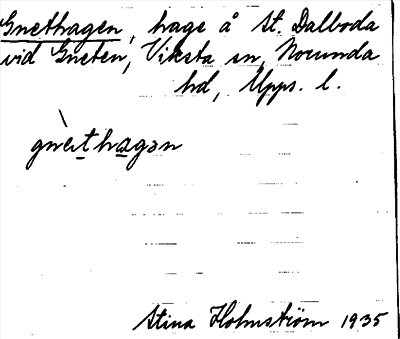 Gnethagen, hage å St. Dalboda
vid Gneten, Viksta sn, Norunda
hd, Upps. l.
gnèthagən
Stina Holmström 1935